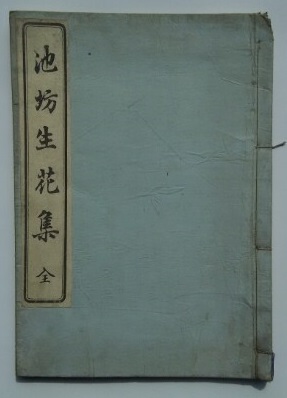 池坊生花集 全